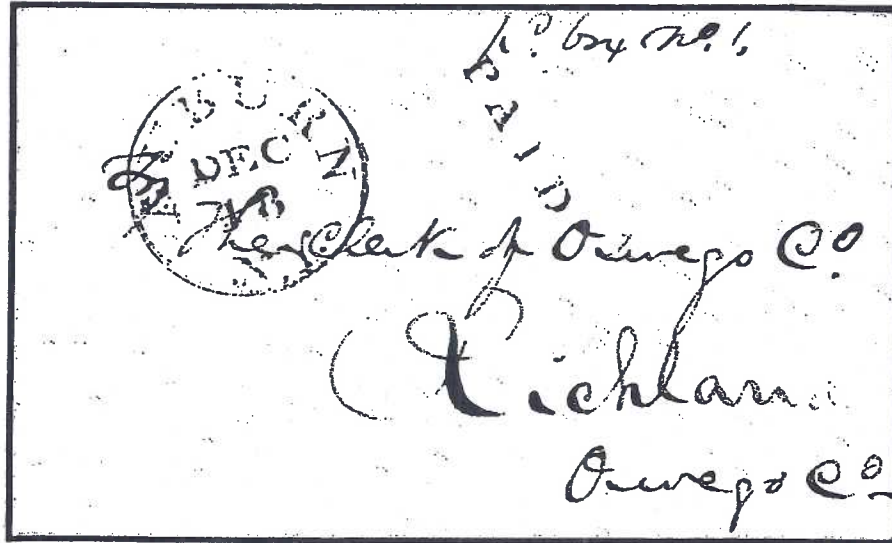 Pd. box No. 1.
PAID
AUBURN
DEC
18
N.Y.
The Clerk of Oswego Co.
Richland
Oswego Co.